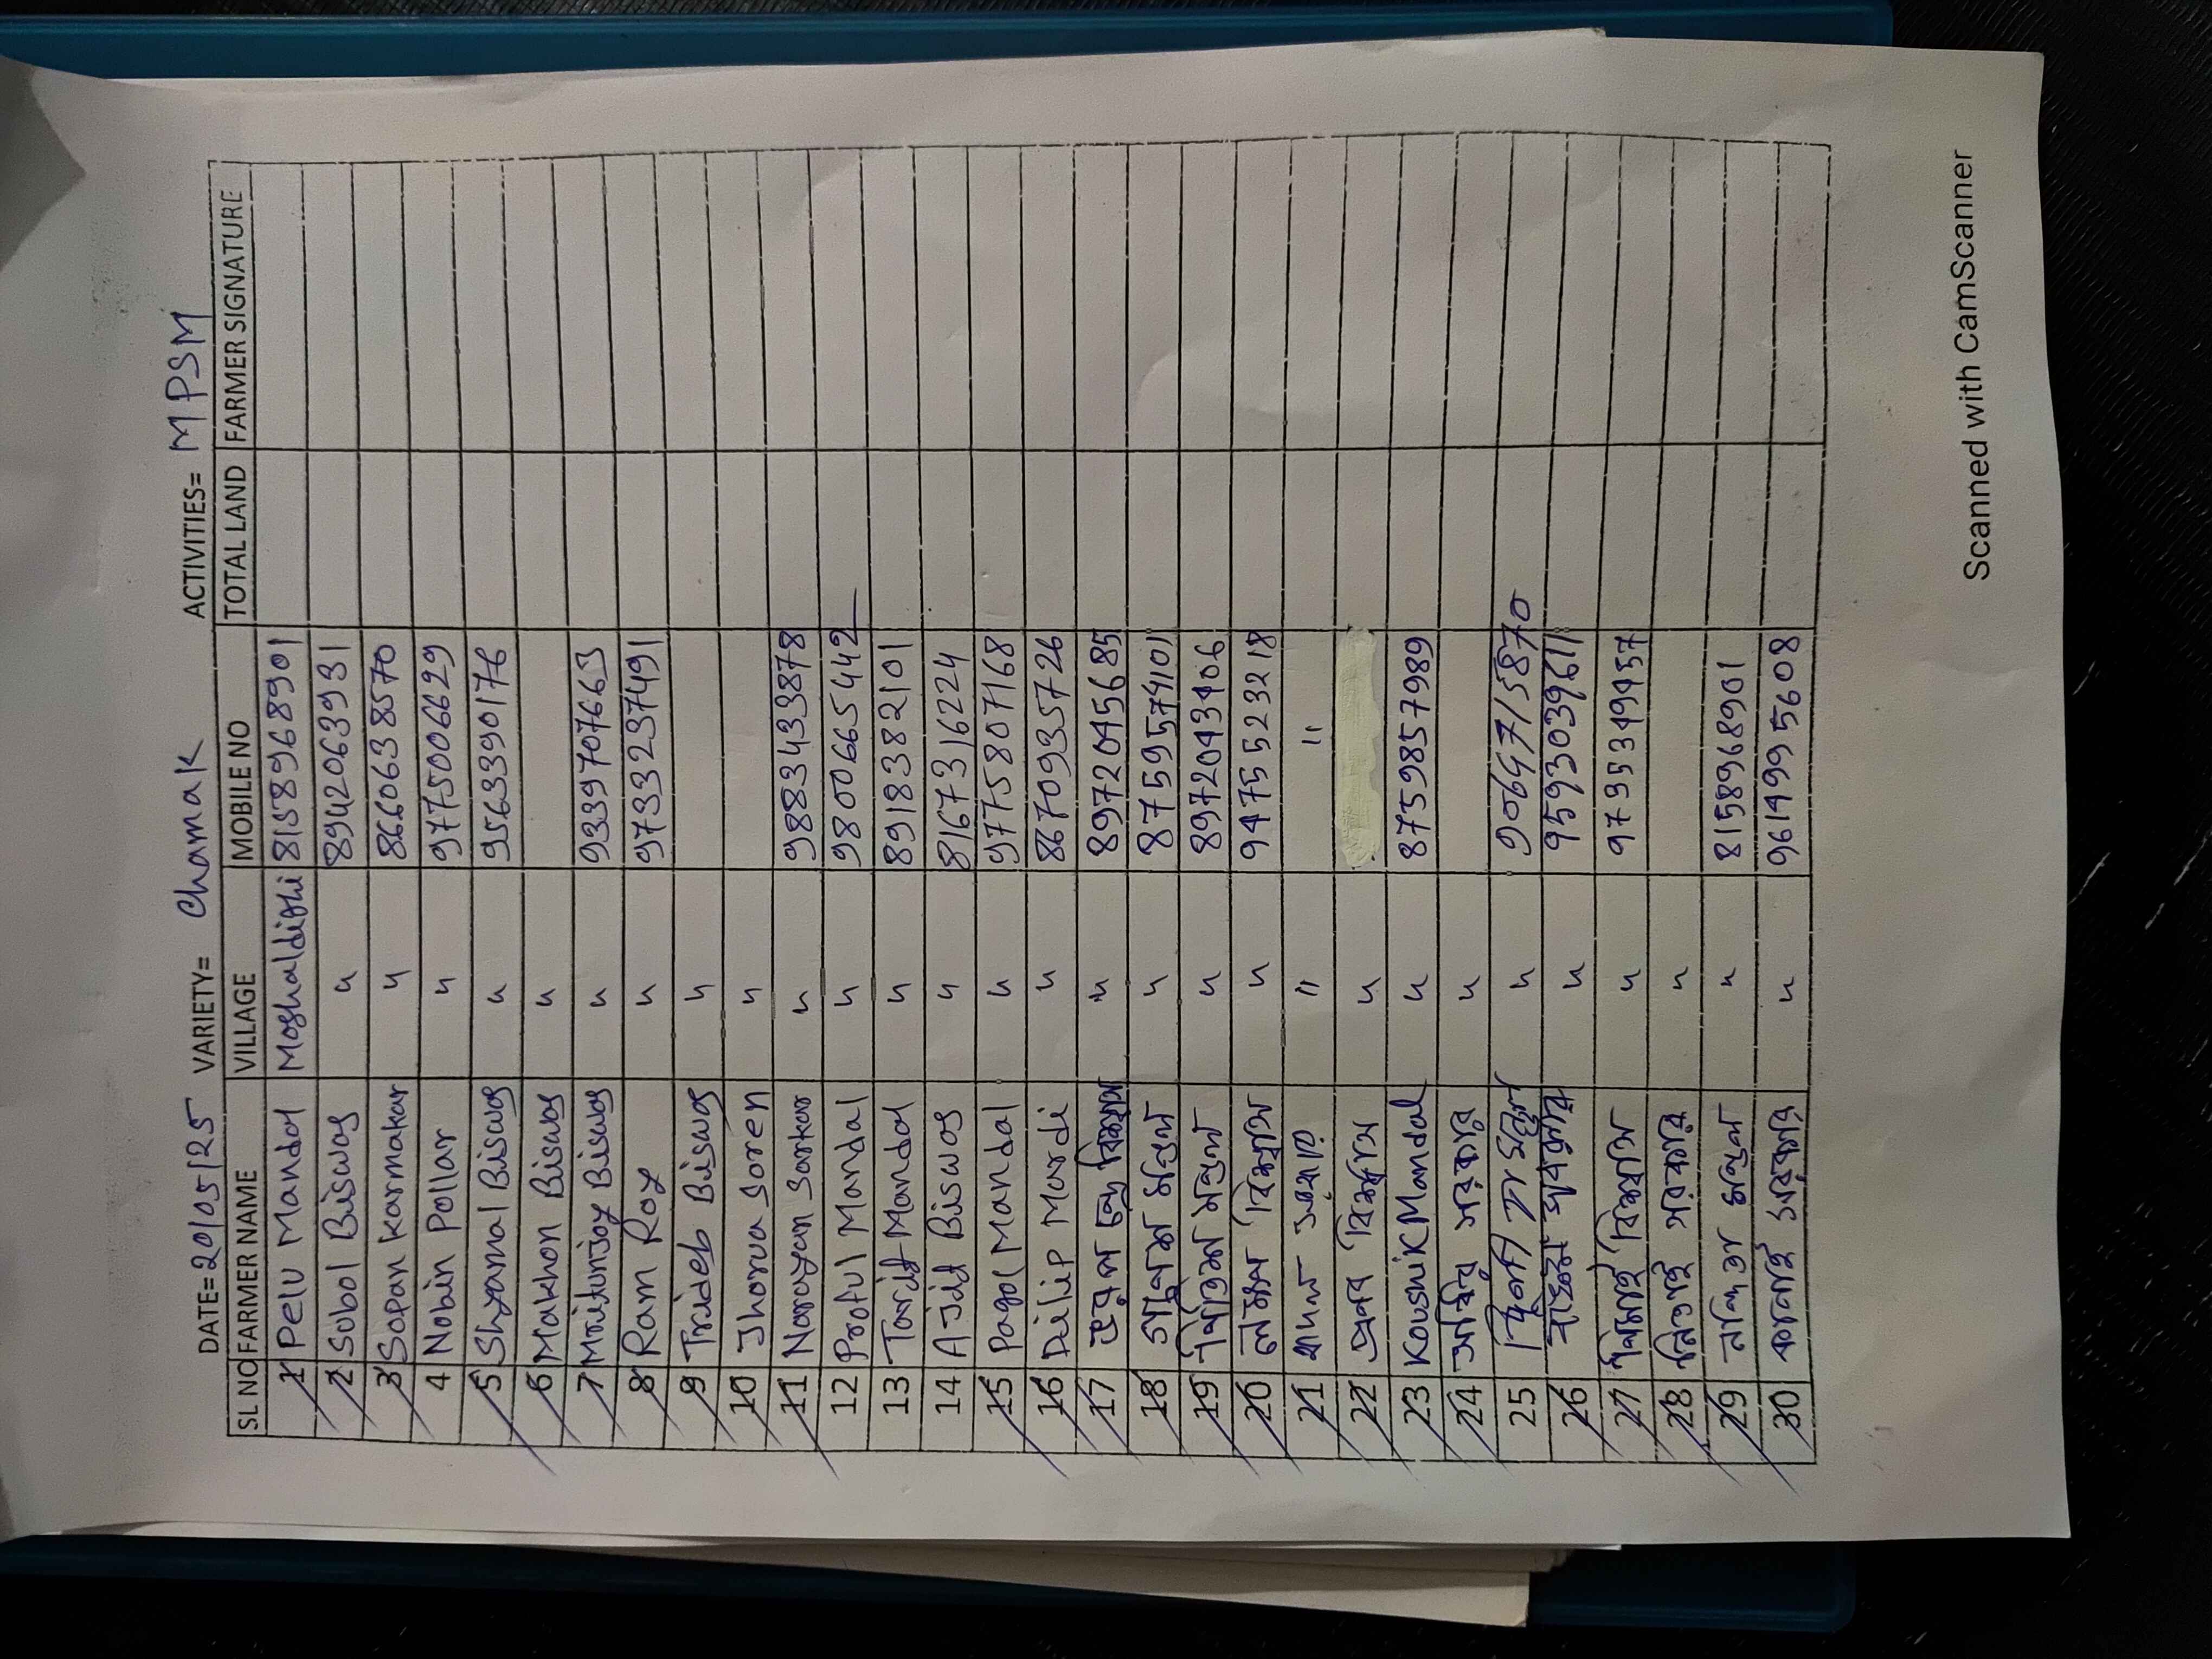 DATE= 20/05/25 VARIETY= Chamak ACTIVITIES= MPSM
SL NO FARMER NAME VILLAGE MOBILE NO TOTAL LAND FARMER SIGNATURE
1 Pelu Mandal Moshaldighi 8158968901
2 Subol Biswas " 8942063931
3 Sopan Karmakar " 8660638570
4 Nobin Pollar " 9775006629
5 Shyamal Biswas " 9563390176
6 Makhon Biswas "
7 Mritunjoy Biswas " 9339707663
8 Ram Roy " 9733237491
9 Trideb Biswas "
10 Jhorua Soren "
11 Narayan Sarkar " 9883433878
12 Proful Mandal " 9800665442
13 Tarit Mandal " 8918382101
14 Ajit Biswas " 8167316224
15 Pagol Mandal " 9775807168
16 Dilip Mardi " 8670935726
17 বিশ্বাস " 8972045685
18 মন্ডল " 8759574101
19 মন্ডল " 8972043406
20 লক্ষন বিশ্বাস " 9475523218
21 " "
22 প্রনব বিশ্বাস "
23 Koushik Mandal " 8759857989
24 সরকার "
25 " 9064715870
26 " 9593039611
27 নিমাই বিশ্বাস " 9735349457
28 নিতাই সরকার "
29 মন্ডল " 8158968901
30 কানাই সরকার " 9614995608
Scanned with CamScanner